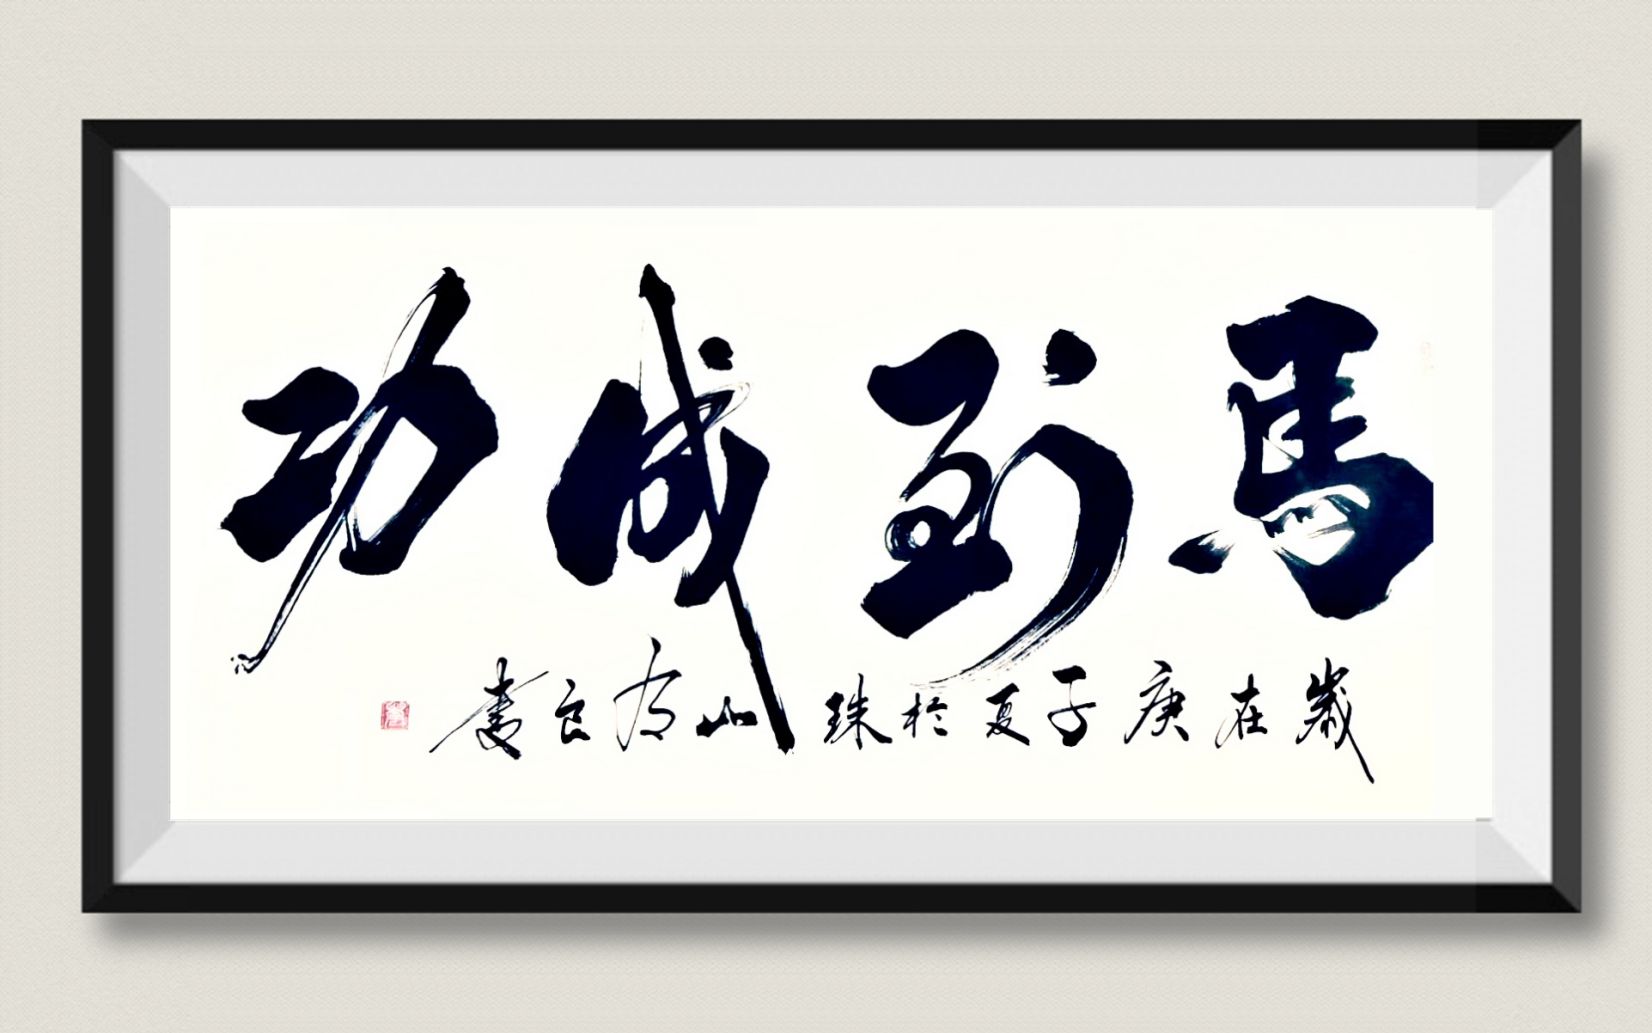 馬到成功
歲在庚子夏於珠山方良書